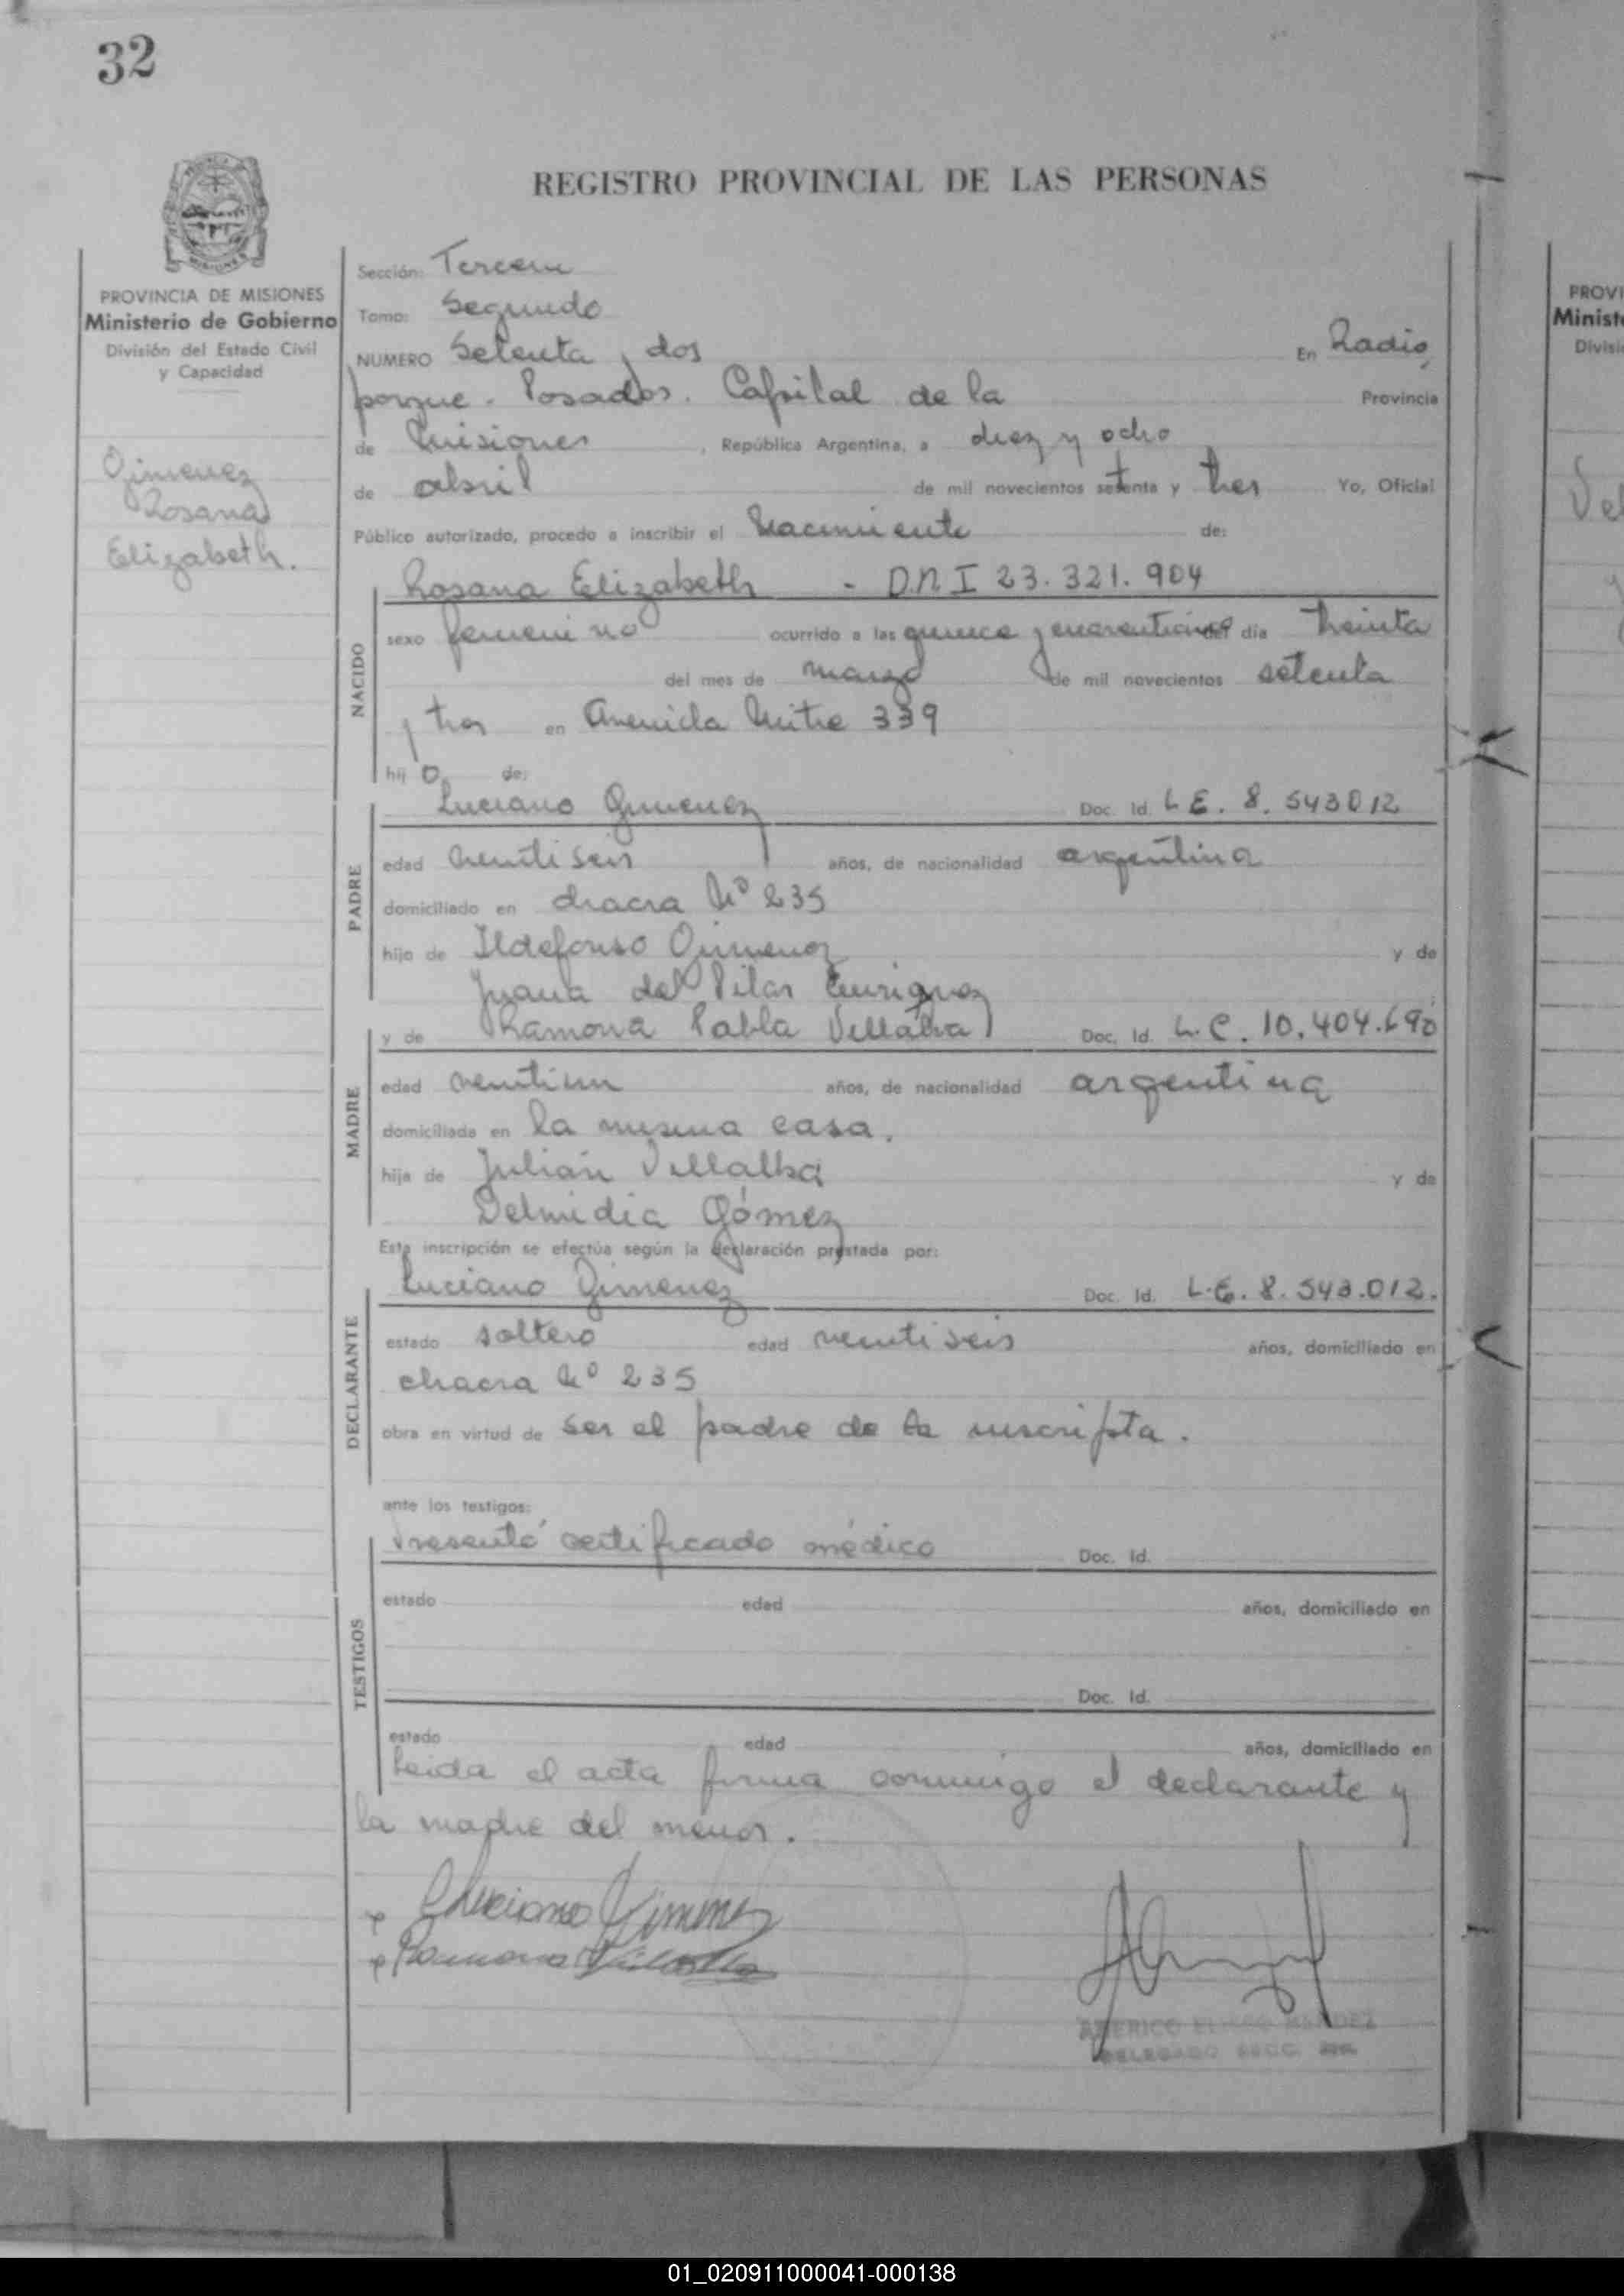 32
REGISTRO PROVINCIAL DE LAS PERSONAS
PROVINCIA DE MISIONES
Ministerio de Gobierno
División del Estado Civil
y Capacidad
Gimenez
Rosana
Elizabeth.
Sección: Tercera
Tomo: Segundo
NUMERO Setenta y dos En Radio,
parque - Posadas. Capital de la Provincia
de Misiones, República Argentina, a diez y ocho
de abril de mil novecientos setenta y tres Yo, Oficial
Público autorizado, procedo a inscribir el Nacimiento de:
Rosana Elizabeth - D.N.I 23.321.904
NACIDO
sexo femenino ocurrido a las quince y cuarenticinco del día treinta
del mes de marzo de mil novecientos setenta
y tres en Avenida Mitre 339
hij o de:
Luciano Gimenez Doc. Id. L E. 8. 543012
PADRE
edad ventiseis años, de nacionalidad argentina
domiciliado en chacra Nº 235
hijo de Ildefonso Gimenez y de
Juana del Pilar Enriquez
y de Ramona Pabla Villalba Doc. Id. L.C. 10.404.690
MADRE
edad ventiun años, de nacionalidad argentina
domiciliada en la misma casa.
hija de Julián Villalba y de
Delmidia Gómez
Esta inscripción se efectúa según la declaración prestada por:
Luciano Gimenez Doc. Id. L.E. 8. 543.012.
DECLARANTE
estado soltero edad ventiseis años, domiciliado en
chacra Nº 235
obra en virtud de ser el padre de la inscripta.
ante los testigos:
Presentó certificado médico Doc. Id.
TESTIGOS
estado edad años, domiciliado en
Doc. Id.
estado edad años, domiciliado en
Leida el acta firma conmigo el declarante y
la madre del menor.
Luciano Gimenez
Ramona Villalba
AMERICO ELISEO MENDEZ
DELEGADO SECC. 3ra.
PROVI
Ministe
Divisi
01_020911000041-000138